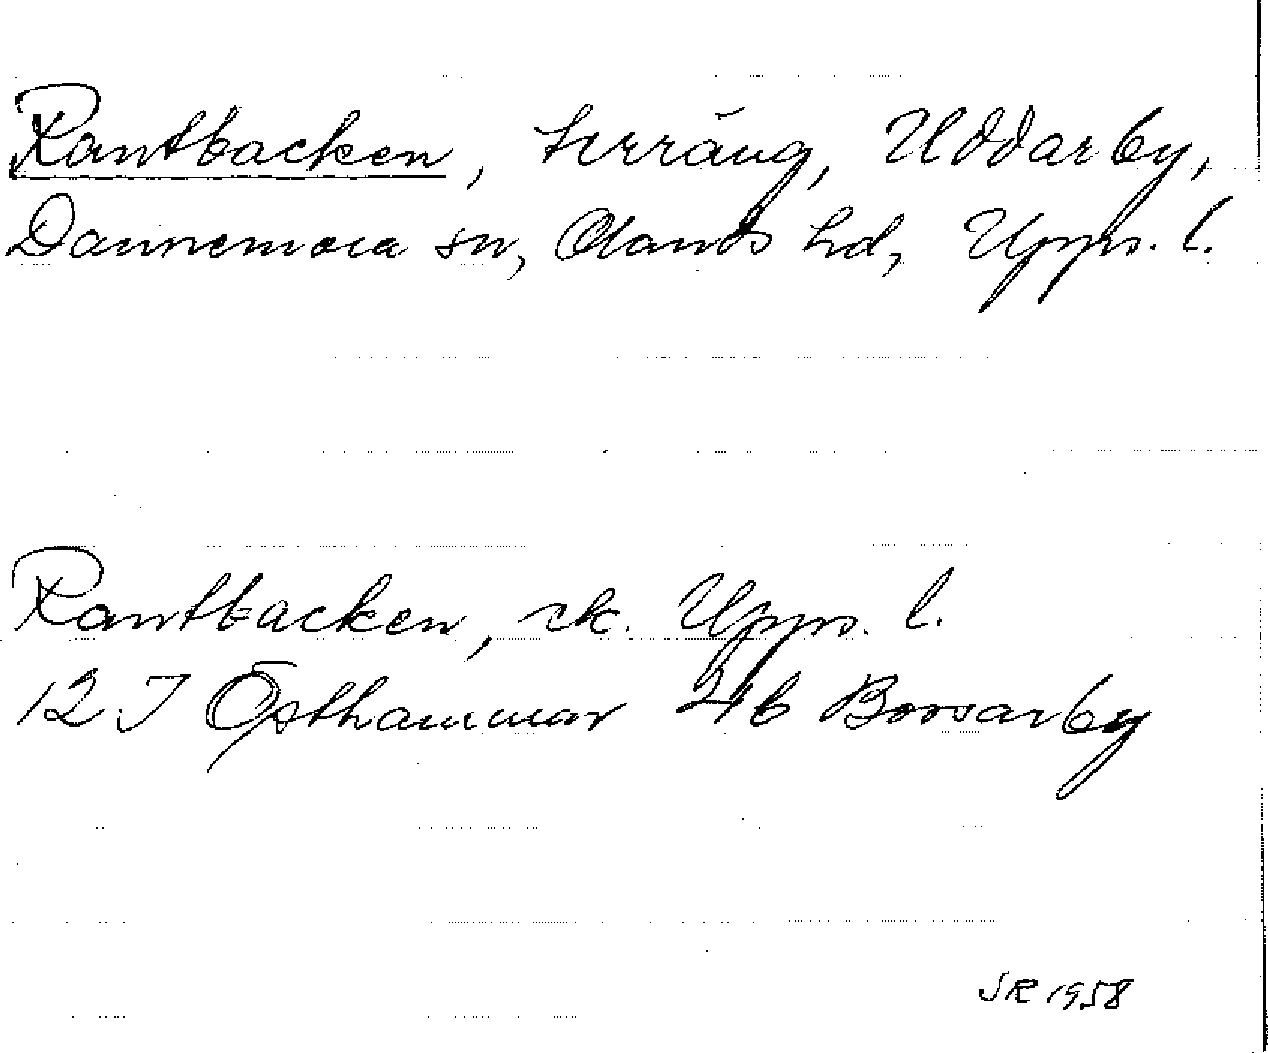 Rantbacken, terräng, Uddarby,
Dannemora sn, Olands hd, Upps. l.
Rantbacken, ek. Upps. l.
12 I Östhammar 4b Boosarby
SR 1958